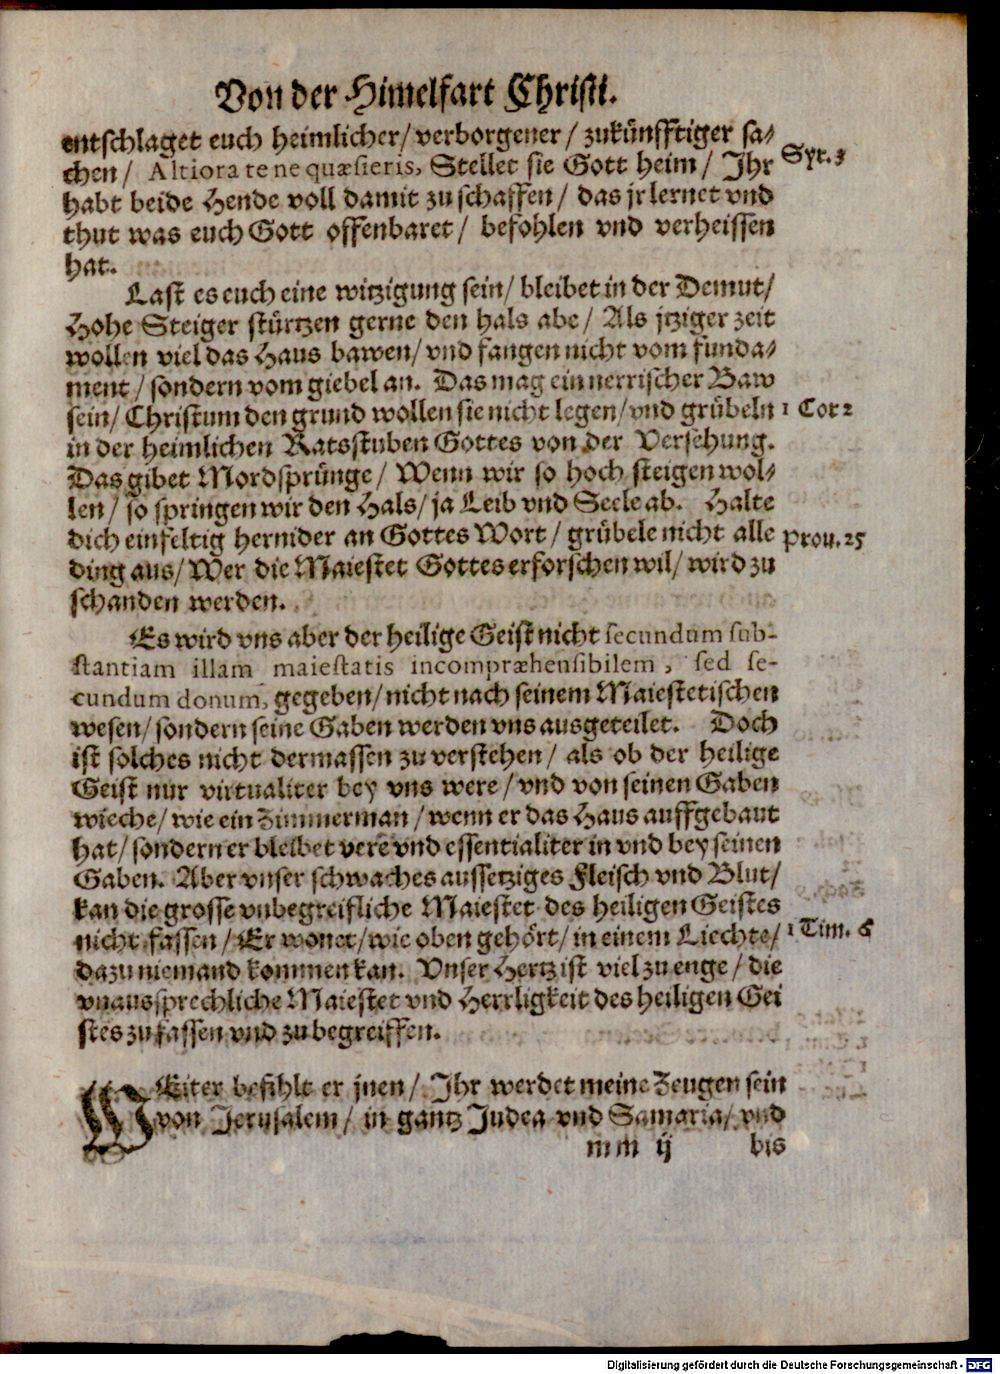 Von der Himelfart Christi.
entschlaget euch heimlicher/ verborgener/ zukünfftiger sa⸗
chen/ Altiora te ne quæsieris, Stellet sie Gott heim/ Ihr
Syr. 3
habt beide Hende voll damit zu schaffen/ das jr lernet vnd
thut was euch Gott offenbaret/ befohlen vnd verheissen
hat.
Last es euch eine witzigung sein/ bleibet in der Demut/
Hohe Steiger stürtzen gerne den hals abe/ Als jtziger zeit
wollen viel das Haus bawen/ vnd fangen nicht vom funda⸗
ment/ sondern vom giebel an. Das mag ein nerrischer Baw
sein/ Christum den grund wollen sie nicht legen/ vnd grübeln
1 Cor 2
in der heimlichen Ratsstuben Gottes von der Versehung.
Das gibet Mordsprünge/ Wenn wir so hoch steigen wol⸗
len/ so springen wir den Hals/ ja Leib vnd Seele ab. Halte
dich einfeltig hernider an Gottes Wort/ grübele nicht alle
Prou. 25
ding aus/ Wer die Maiestet Gottes erforschen wil/ wird zu
schanden werden.
Es wird vns aber der heilige Geist nicht secundum sub-
stantiam illam maiestatis incompræhensibilem, sed se-
cundum donum, gegeben/ nicht nach seinem Maiestetischen
wesen/ sondern seine Gaben werden vns ausgeteilet. Doch
ist solches nicht dermassen zu verstehen/ als ob der heilige
Geist nur virtualiter bey vns were/ vnd von seinen Gaben
wieche/ wie ein Zimmerman/ wenn er das Haus auffgebaut
hat/ sondern er bleibet vere vnd essentialiter in vnd bey seinen
Gaben. Aber vnser schwaches aussetziges Fleisch vnd Blut/
kan die grosse vnbegreifliche Maiestet des heiligen Geistes
nicht fassen/ Er wonet/ wie oben gehört/ in einem Liechte/
1 Tim. 6
dazu niemand kommen kan. Vnser Hertz ist viel zu enge/ die
vnaussprechliche Maiestet vnd Herrligkeit des heiligen Gei
stes zu fassen vnd zu begreiffen.
WEiter befihlt er jnen/ Ihr werdet meine Zeugen sein
von Jerusalem/ in gantz Judea vnd Samaria/ vnd
mm ij bis
Digitalisierung gefördert durch die Deutsche Forschungsgemeinschaft - DFG